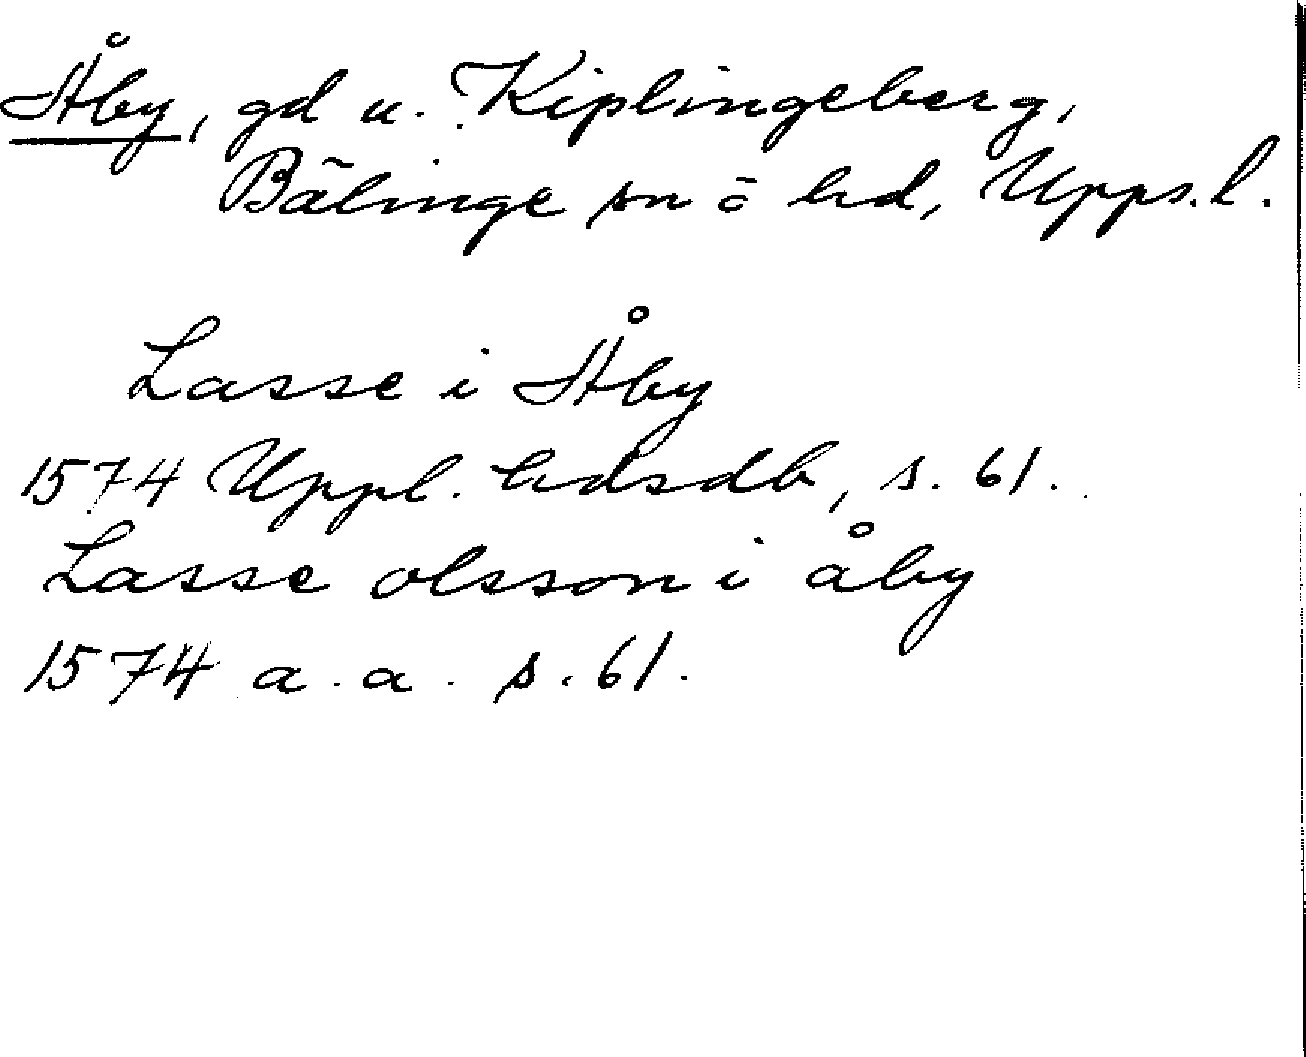 Åby, gd u. Kiplingeberg,
Bälinge sn o hd, Upps.l.
Lasse i Åby
1574 Uppl. hdsdb, s. 61.
Lasse olsson i åby
1574 a.a. s. 61.